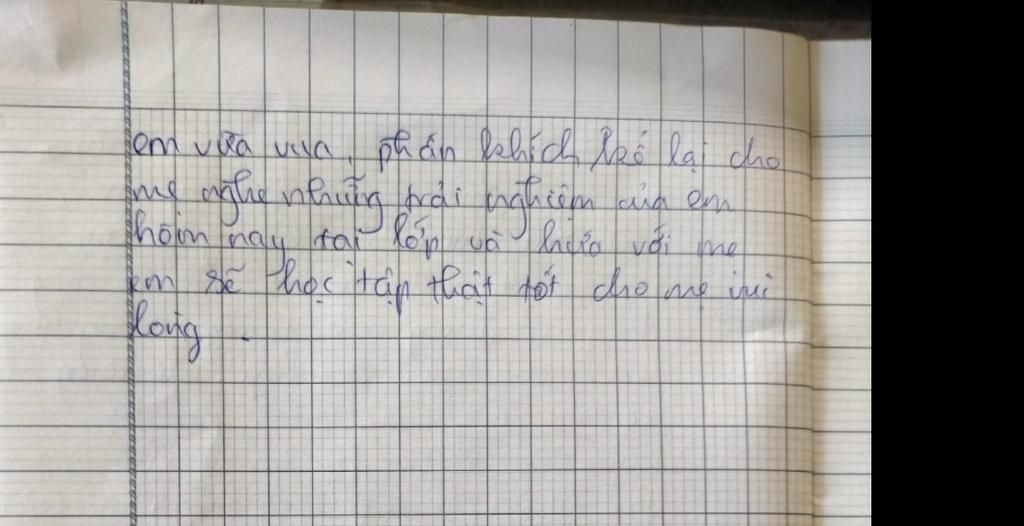 em vừa vua, phấn khích kể lại cho
mẹ nghe những trải nghiệm của em
hôm nay tại lớp và hứa với mẹ
em sẽ học tập thật tốt cho mẹ vui
lòng.